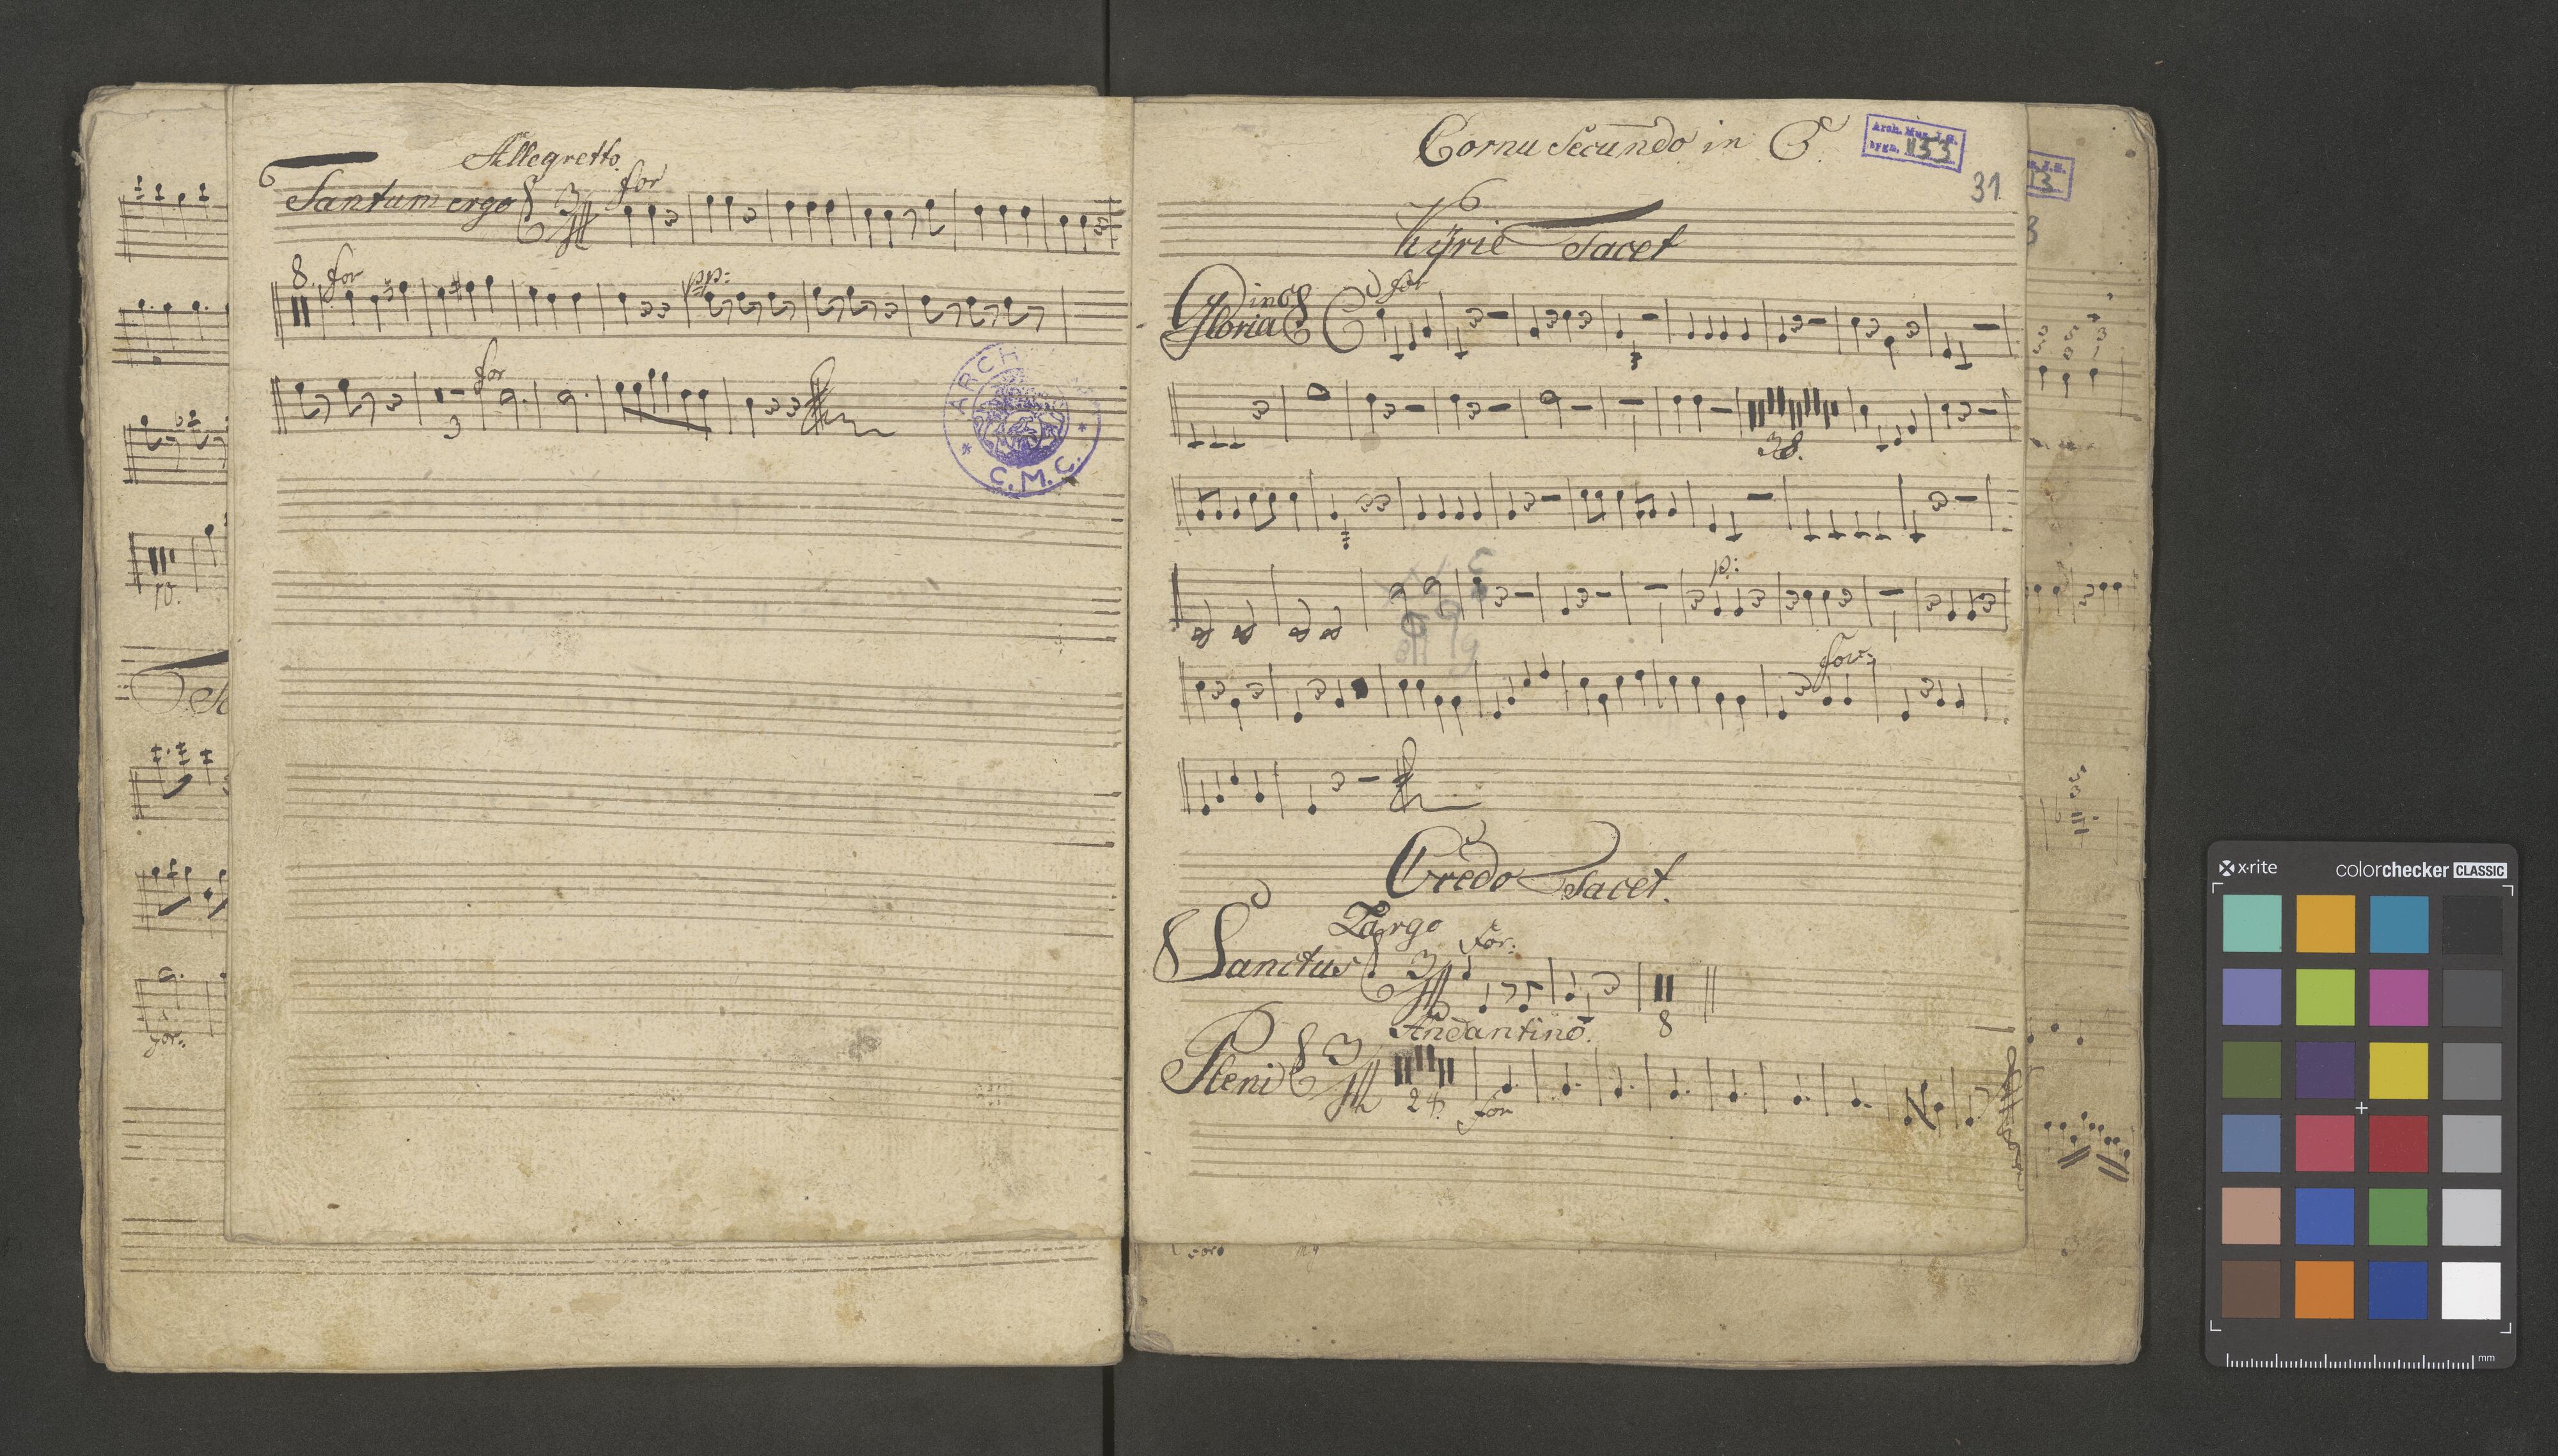 Allegretto
Tantum ergo for
8. for pp:
for
3
ARCH
C.M.C.
10.
for:
Cornu Secundo in C
Arch. Muz. J. G.
sygn. III 53
31
Kÿrie Tacet
Gloria in C for
38.
p:
for:
Credo Tacet.
Largo
Sanctus for:
8
Andantino.
Pleni
24. for
x·rite colorchecker CLASSIC
mm